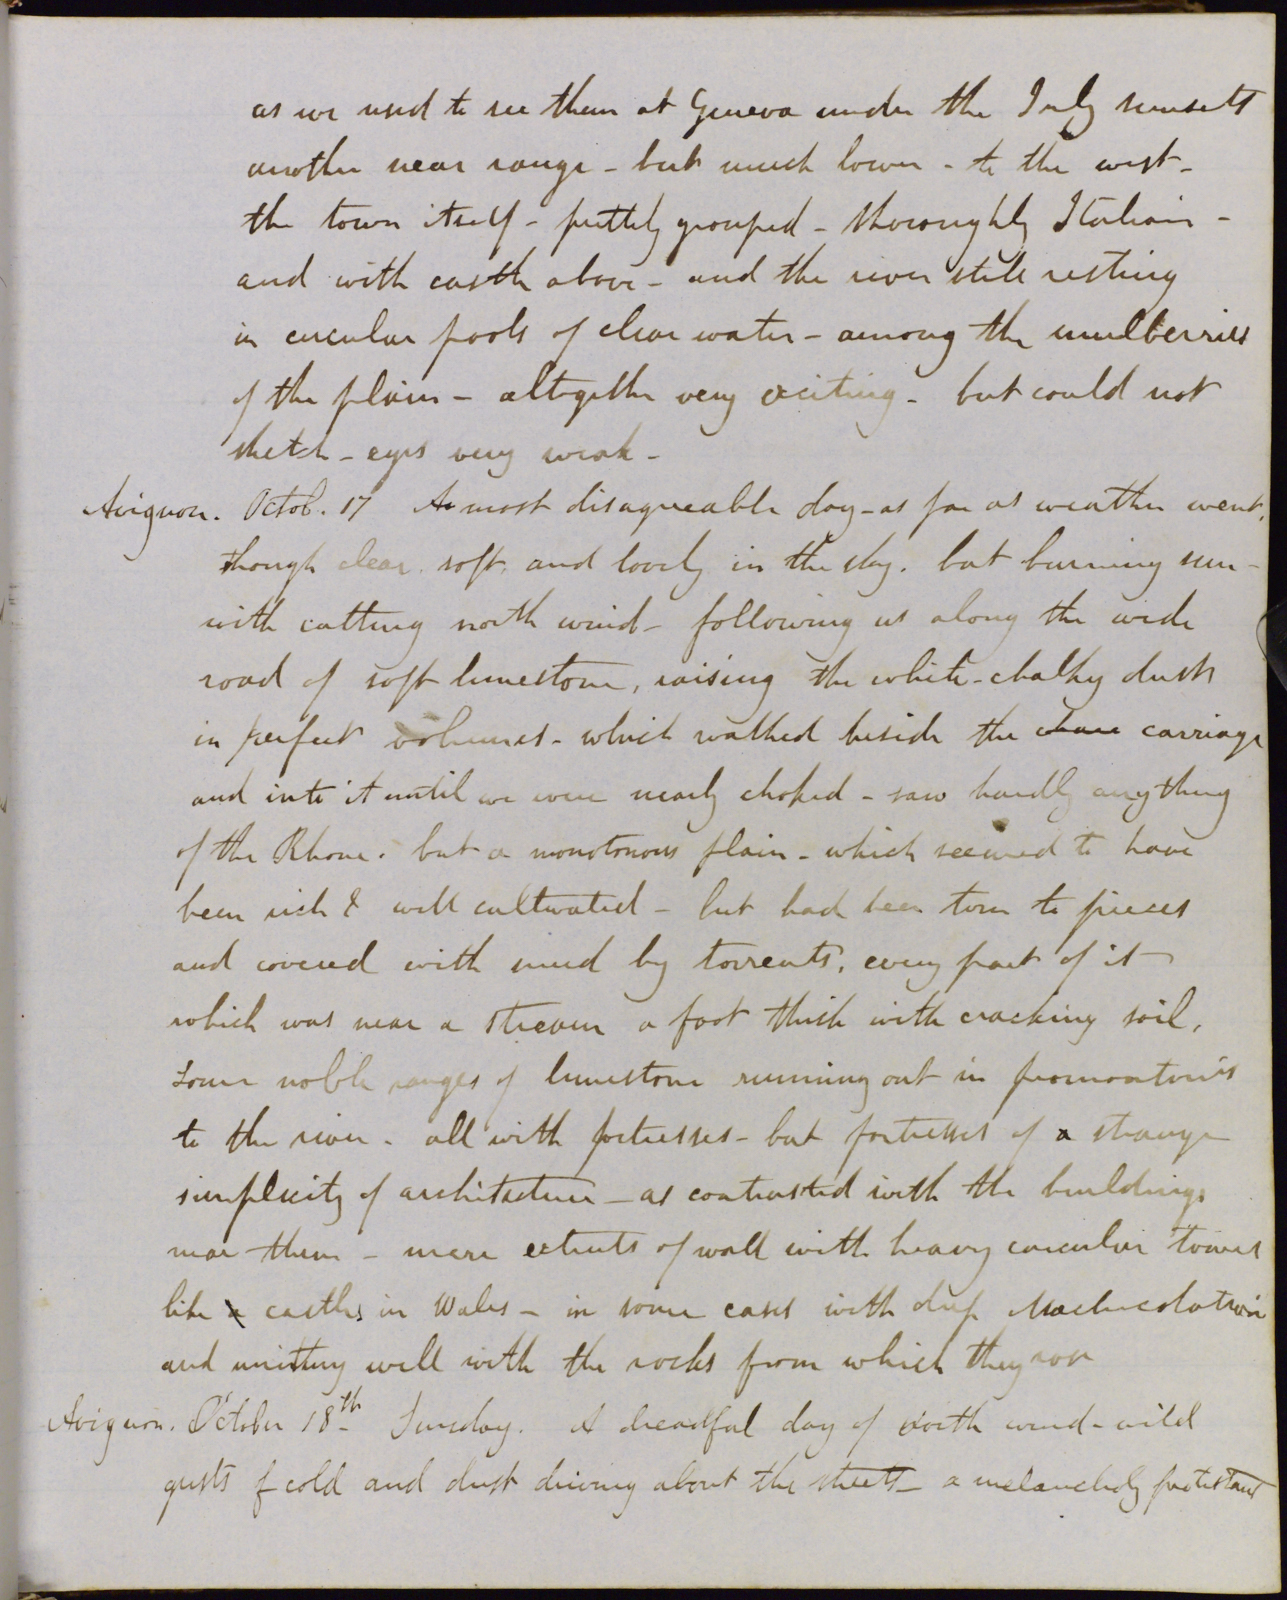 as we used to see them at Geneva under the July sunsets
another near range - but much lower - to the west -
the town itself - prettily grouped - thoroughly Italian -
and with castle above - and the river still resting
in circular pools of clear water - among the mulberries
of the plain - altogether very exciting - but could not
sketch - eyes very weak -
Avignon. Octob. 17 A most disagreeable day - as far as weather went,
though clear, soft, and lovely in the sky. but burning sun -
with cutting north wind - following us along the wide
road of soft limestone, raising the white - chalky dust
in perfect volumes - which walked beside the carriage
and into it until we were nearly choked - saw hardly anything
of the Rhone. but a monotonous plain - which seemed to have
been rich & well cultivated - but had been torn to pieces
and covered with mud by torrents, every part of it
which was near a stream a foot thick with cracking soil,
Some noble ranges of limestone running out in promontories
to the river - all with fortresses - but fortresses of a strange
simplicity of architecture - as contrasted with the buildings
near them - mere extents of wall with heavy circular towers
like castles in Wales - in some cases with deep Machicolation
and uniting well with the rocks from which they rose
Avignon. October 18th - Sunday. A dreadful day of north wind - wild
gusts of cold and dust driving about the streets - a melancholy protestant